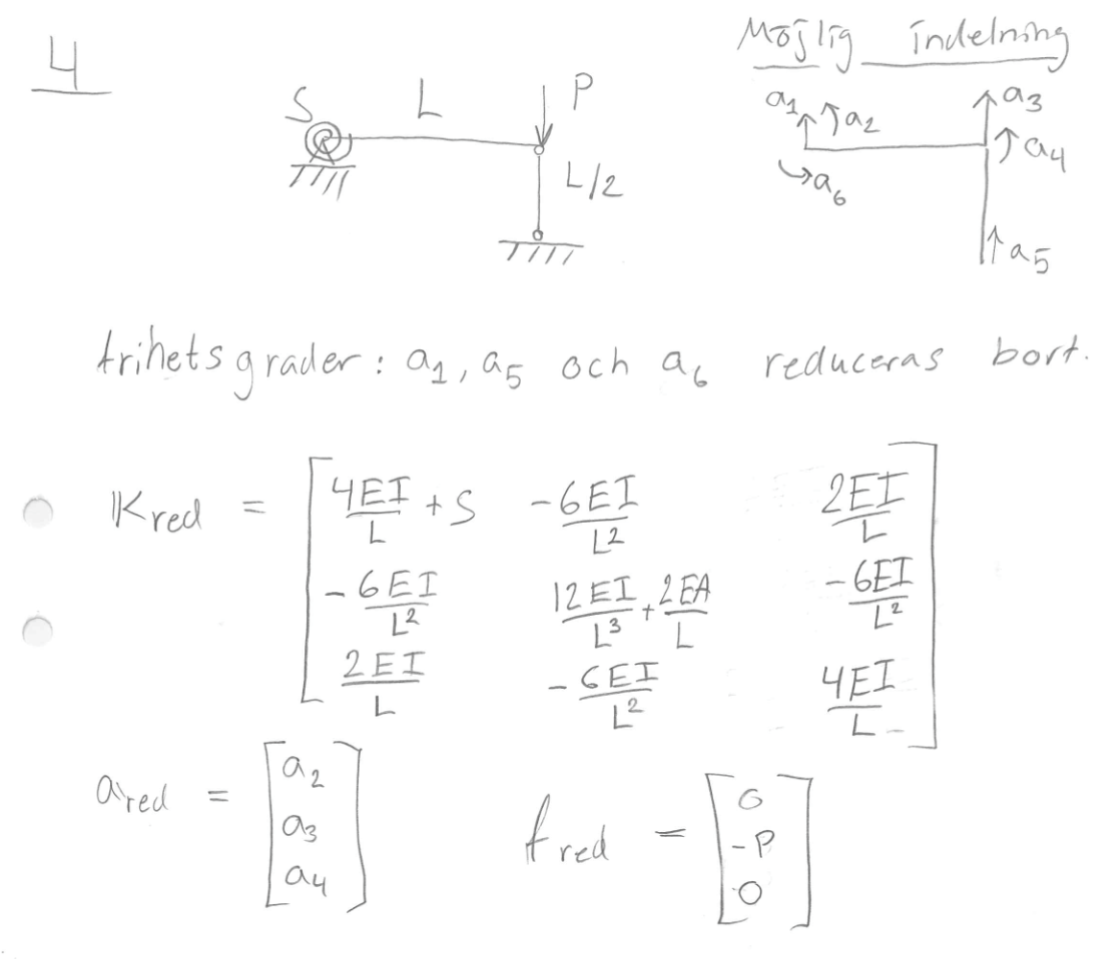 4
Möjlig indelning
S L P
L/2
a1 a2 a3
a4
a6
a5
frihetsgrader: a1, a5 och a6 reduceras bort.
Kred = [ 4EI/L + S -6EI/L² 2EI/L
-6EI/L² 12EI/L³ + 2EA/L -6EI/L²
2EI/L -6EI/L² 4EI/L ]
ared = [ a2 a3 a4 ] fred = [ 0 -P 0 ]